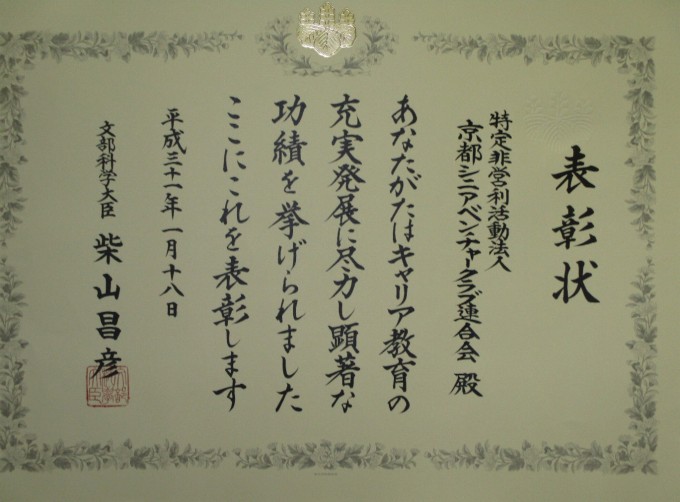 表彰状
特定非営利活動法人
京都シニアベンチャークラブ連合会 殿
あなたがたはキャリア教育の
充実発展に尽力し顕著な
功績を挙げられました
ここにこれを表彰します
平成三十一年一月十八日
文部科学大臣 柴山昌彦